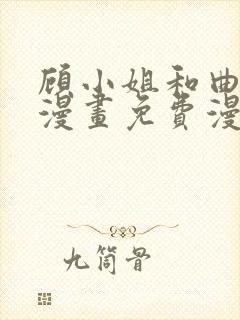 顾小姐和曲
漫畫免費漫
九筒骨